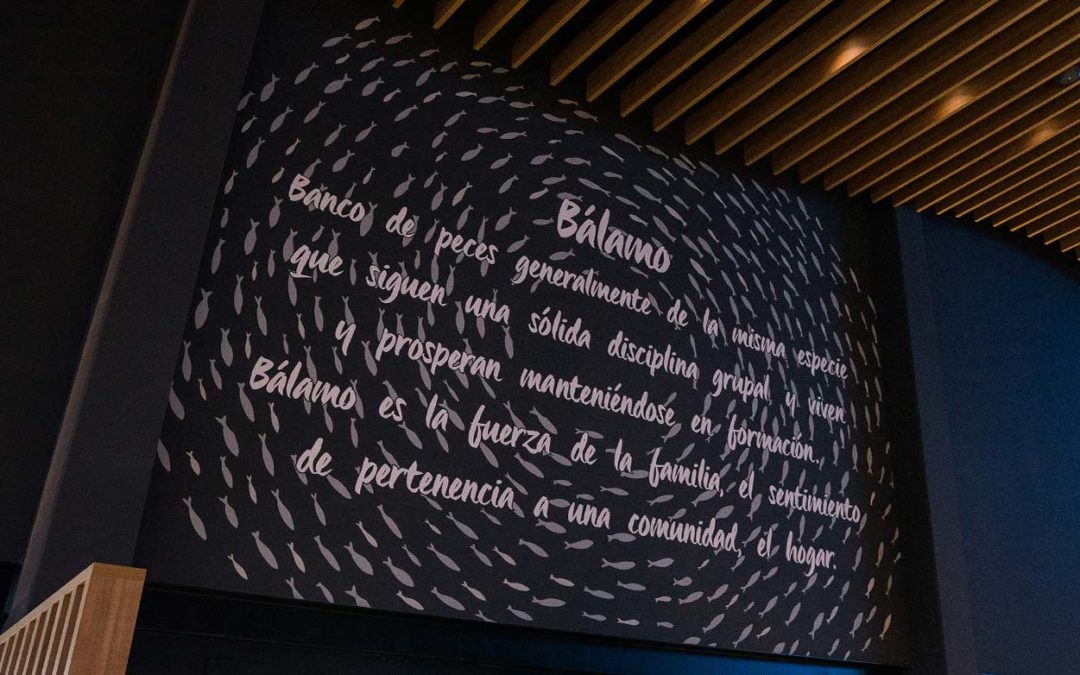 Bálamo
Banco de peces generalmente de la misma especie
que siguen una sólida disciplina grupal y viven
y prosperan manteniéndose en formación.
Bálamo es la fuerza de la familia, el sentimiento
de pertenencia a una comunidad, el hogar.